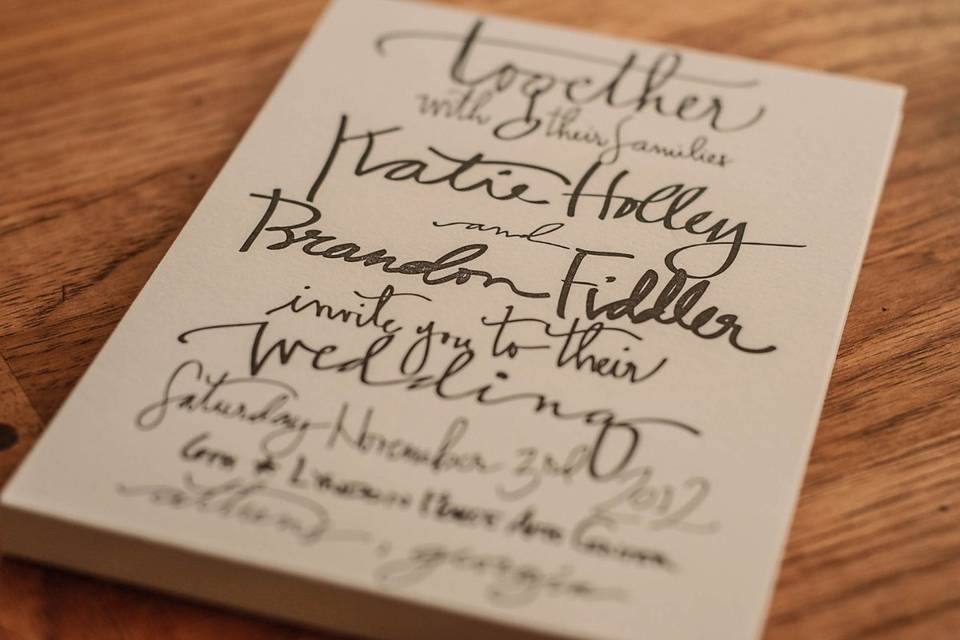 together
with their families
Katie Holley
and
Brandon Fiddler
invite you to their
wedding
Saturday November 3rd 2012
athens, georgia